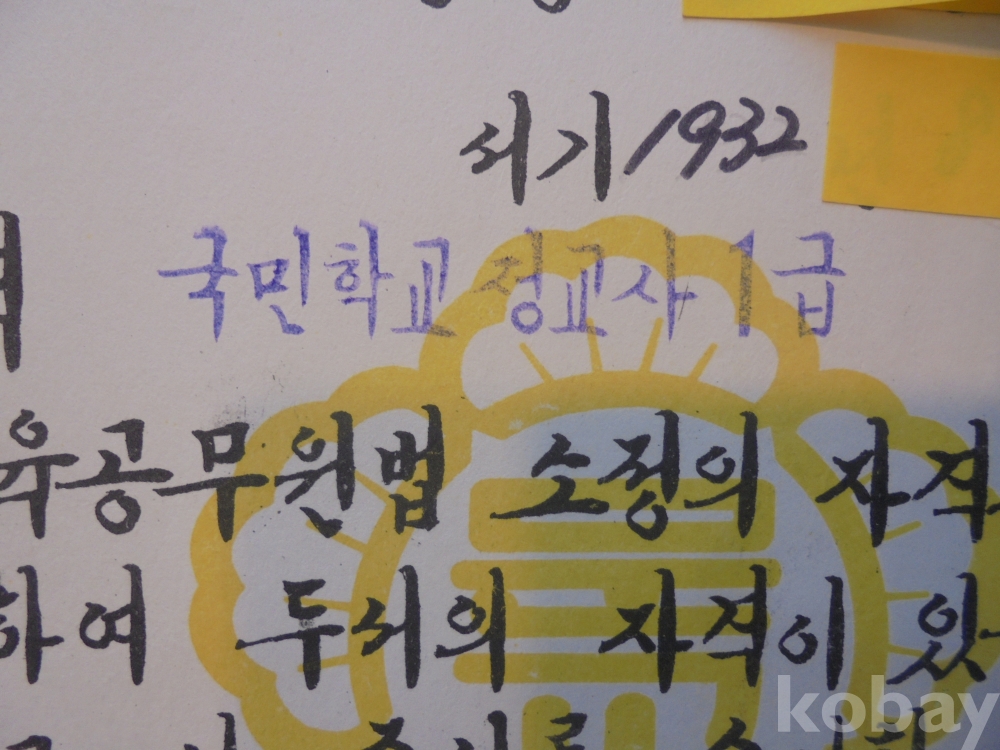 서기1932
국민학교 정교사 1급
육공무원법 소정의 자격
하여 두서의 자격이 있
kobay